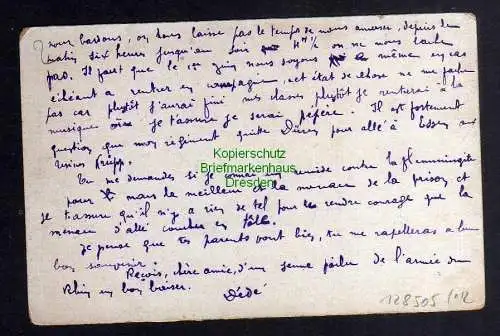 nous bardons, on nous laisse pas le temps de nous amuser, depuis le
matin six heures jusqu'au soir 4 h ½ on ne nous lache
pas. Il faut que le 1er juin nous soyons à même en cas
échéant à rentrer en compagnie, cet état de chose ne me fache
pas car plutôt j'aurai fini mes classes plutôt je rentrerai à la
musique je t'assure je serai pépère. Il est fortement
question que mon régiment quitte Düren pour allé à Essen aux
usines Krupp.
Tu me demandes si je connais un remède contre la flemmingite
mais le meilleur est la menace de la prison et
je t'assure qu'il n'y a rien de tel pour rendre courage que la
menace d'allé coucher en tôle.
Je pense que tes parents vont bien, tu me rapelleras à leur
bon souvenir.
Reçois, chère amie, d'un jeune poilu de l'armée du
Rhin un bon baiser.
Dédé
128505/012
Kopierschutz
Briefmarkenhaus
Dresden